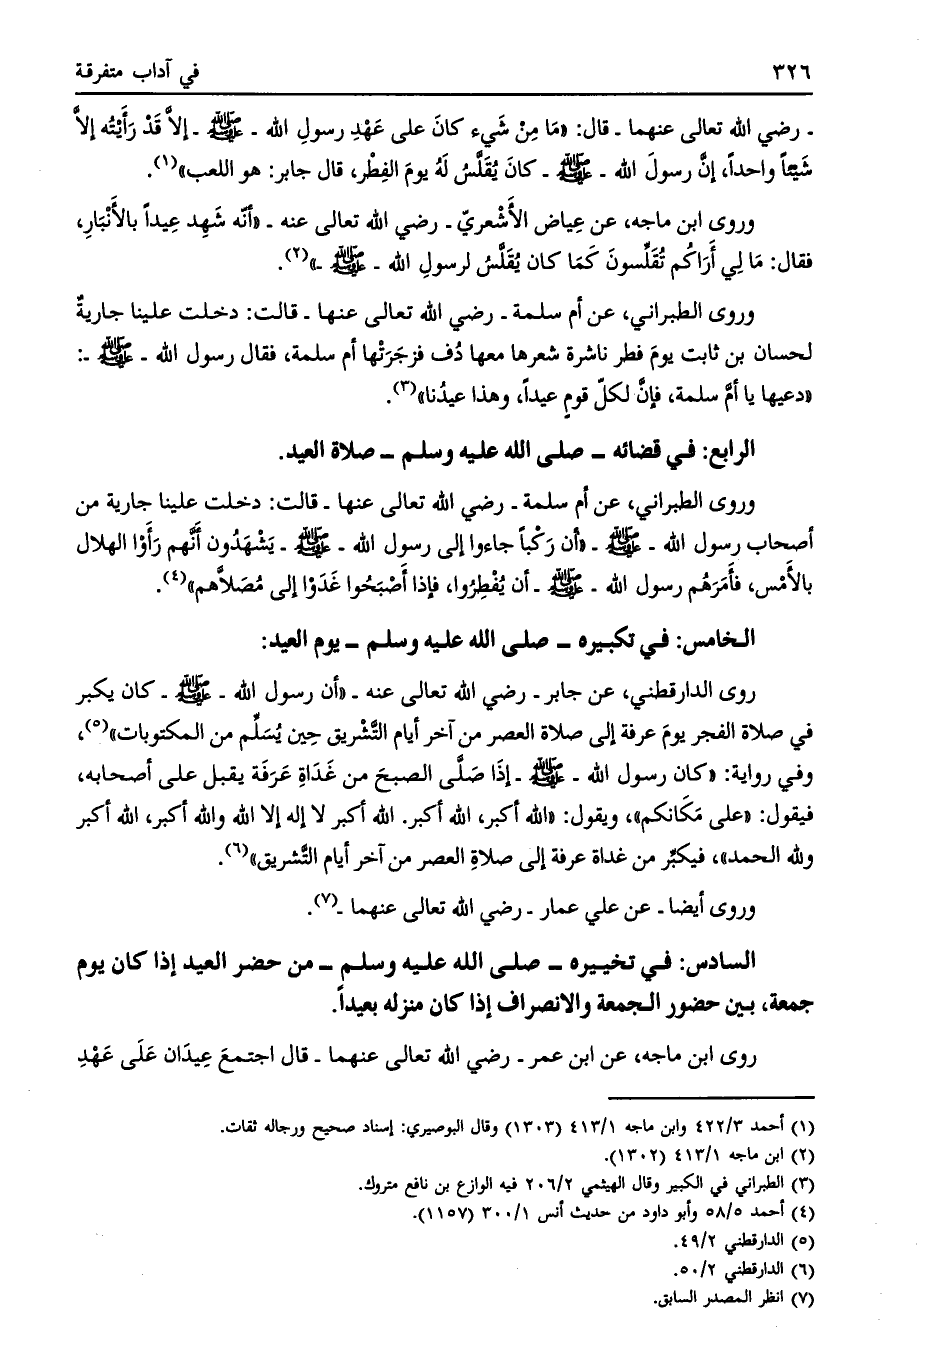 ٣٢٦ في آداب متفرقة
ـ رضي الله تعالى عنهما ـ قال: «مَا مِنْ شَيء كانَ على عَهْدِ رسولِ الله ـ ﷺ ـ إلاَّ قَدْ رَأَيْتُه إلاَّ
شَيْعاً واحداً، إنَّ رسولَ الله ـ ﷺ ـ كانَ يُقَلَّسُ لَهُ يومَ الفِطْر، قال جابر: هو اللعب»(١).
وروى ابن ماجه، عن عِياض الأَشْعريّ ـ رضي الله تعالى عنه ـ «أنّه شَهِد عِيداً بالأَنْبَارِ،
فقال: مَا لِي أَرَاكُم تُقَلِّسونَ كَمَا كان يُقَلَّسُ لرسولِ الله ـ ﷺ ـ»(٢).
وروى الطبراني، عن أم سلمة ـ رضي الله تعالى عنها ـ قالت: دخلت علينا جاريةٌ
لحسان بن ثابت يومَ فطر ناشرة شعرها معها دُف فزجَرَتْها أم سلمة، فقال رسول الله ـ ﷺ ـ:
«دعيها يا أمَّ سلمة، فإنَّ لكلّ قومٍ عيداً، وهذا عيدُنا»(٣).
الرابع: في قضائه ـ صلى الله عليه وسلم ـ صلاة العيد.
وروى الطبراني، عن أم سلمة ـ رضي الله تعالى عنها ـ قالت: دخلت علينا جارية من
أصحاب رسول الله ـ ﷺ ـ «أن رَكْباً جاءوا إلى رسول الله ـ ﷺ ـ يَشْهَدُون أَنَّهم رَأَوْا الهلال
بالأَمْس، فأَمَرَهُم رسول الله ـ ﷺ ـ أن يُفْطِرُوا، فإذا أَصْبَحُوا غَدَوْا إلى مُصَلاَّهم»(٤).
الخامس: في تكبيره ـ صلى الله عليه وسلم ـ يوم العيد:
روى الدارقطني، عن جابر ـ رضي الله تعالى عنه ـ «أن رسول الله ـ ﷺ ـ كان يكبر
في صلاة الفجر يومَ عرفة إلى صلاة العصر من آخر أيام التَّشريق حِين يُسَلِّم من المكتوبات»(٥)،
وفي رواية: «كان رسول الله ـ ﷺ ـ إذَا صَلَّى الصبحَ من غَدَاةِ عَرَفَة يقبل على أصحابه،
فيقول: «على مَكَانكم»، ويقول: «الله أكبر، الله أكبر. الله أكبر لا إله إلا الله والله أكبر، الله أكبر
ولله الحمد»، فيكبِّر من غداة عرفة إلى صلاةِ العصر من آخر أيام التَّشريق»(٦).
وروى أيضا ـ عن علي عمار ـ رضي الله تعالى عنهما ـ(٧).
السادس: في تخييره ـ صلى الله عليه وسلم ـ من حضر العيد إذا كان يوم
جمعة، بين حضور الجمعة والانصراف إذا كان منزله بعيداً.
روى ابن ماجه، عن ابن عمر ـ رضي الله تعالى عنهما ـ قال اجتمعَ عِيدَان عَلَى عَهْدِ
(١) أحمد ٤٢٢/٣ وابن ماجه ٤١٣/١ (١٣٠٣) وقال البوصيري: إسناد صحيح ورجاله ثقات.
(٢) ابن ماجه ٤١٣/١ (١٣٠٢).
(٣) الطبراني في الكبير وقال الهيثمي ٢٠٦/٢ فيه الوازع بن نافع متروك.
(٤) أحمد ٥٨/٥ وأبو داود من حديث أنس ٣٠٠/١ (١١٥٧).
(٥) الدارقطني ٤٩/٢.
(٦) الدارقطني ٥٠/٢.
(٧) انظر المصدر السابق.